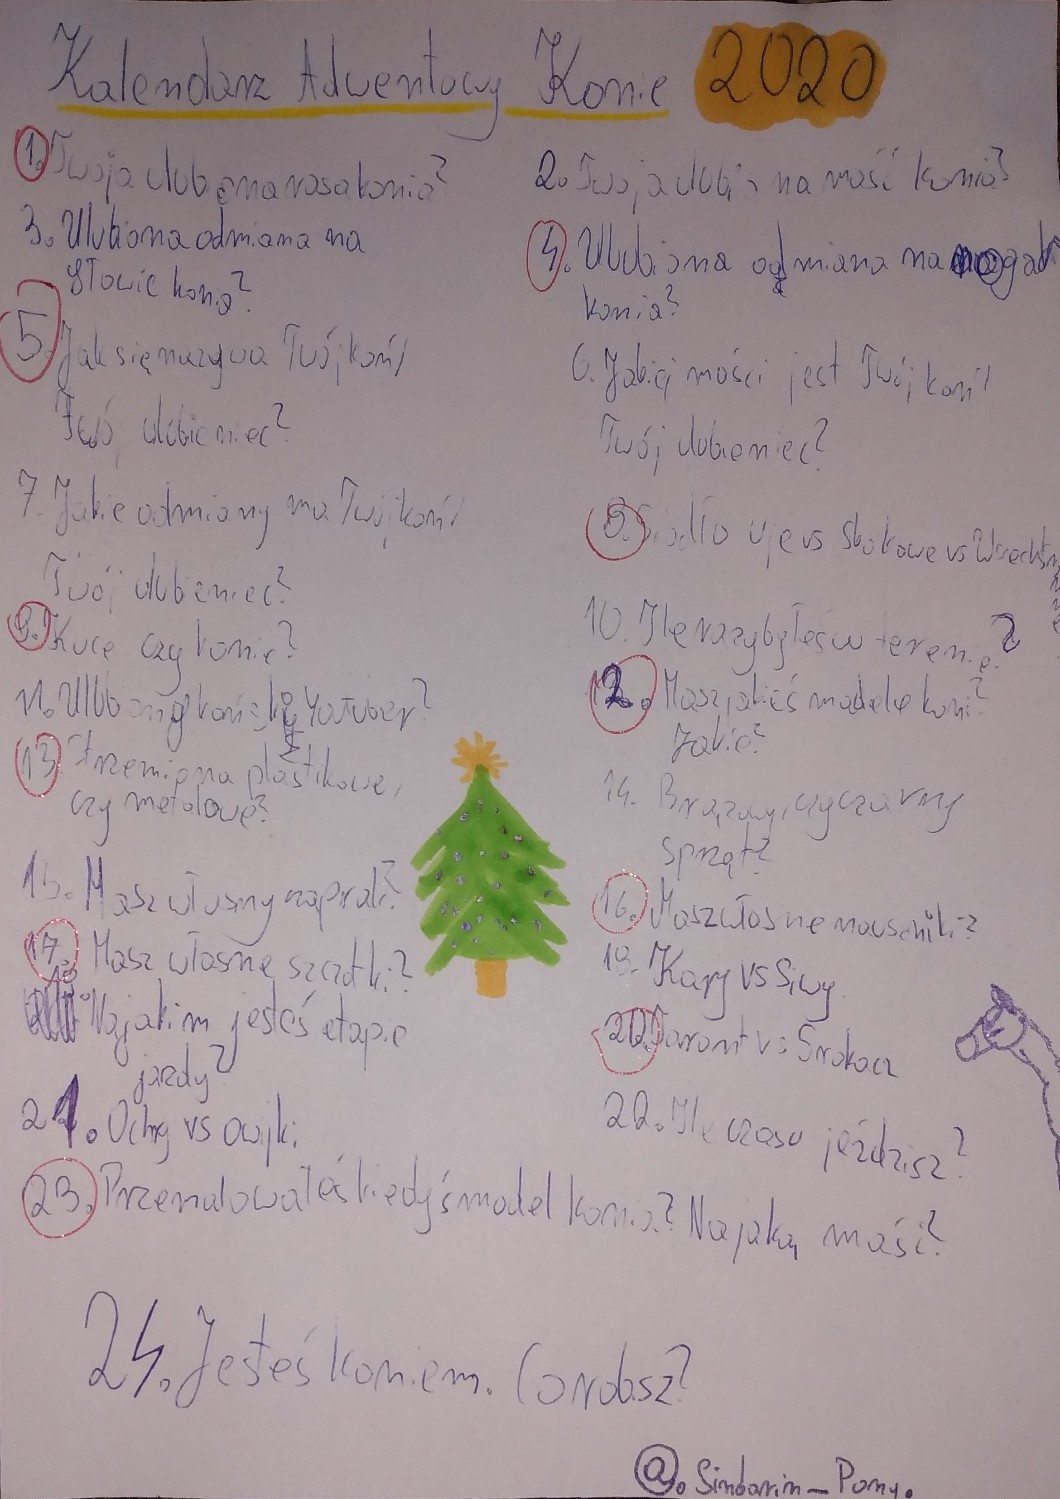 Kalendarz Adwentowy Konie 2020
1. Twoja ulubiona rasa konia?
2. Twoja ulubiona maść konia?
3. Ulubiona odmiana na
głowie konia?
4. Ulubiona odmiana na nogach
konia?
5. Jak się nazywa Twój koń/
Twój ulubieniec?
6. Jakiej maści jest Twój koń/
Twój ulubieniec?
7. Jakie odmiany ma Twój koń/
Twój ulubieniec?
8. Siodło uje vs Skokowe vs Wszechstronne
9. Kuce czy konie?
10. Ile razy byłeś w terenie?
11. Ulubiony koński Yotuber?
12. Masz jakieś modele koni?
Jakie?
13. Strzemiona plastikowe,
czy metalowe?
14. Brązowy, czy czarny
sprzęt?
15. Masz własny czaprak?
16. Masz własne nauszniki?
17. Masz własne szczotki?
18. Kary vs Siwy
19. Na jakim jesteś etapie
jazdy?
20. Tarant vs Srokacz
21. Ochy vs owijki
22. Ile czasu jeździsz?
23. Przemalowałeś kiedyś model konia? Na jaką maść?
24. Jesteś koniem. Co robisz?
@. Sindarin_Pony.